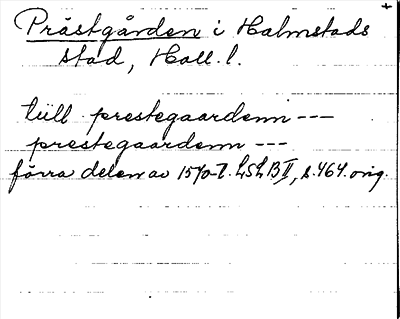 +
Prästgården i Halmstads
stad, Hall. l.
till prestegaardenn ---
prestegaardenn ---
förra delen av 1570-t. LSLB II, s. 464. orig.